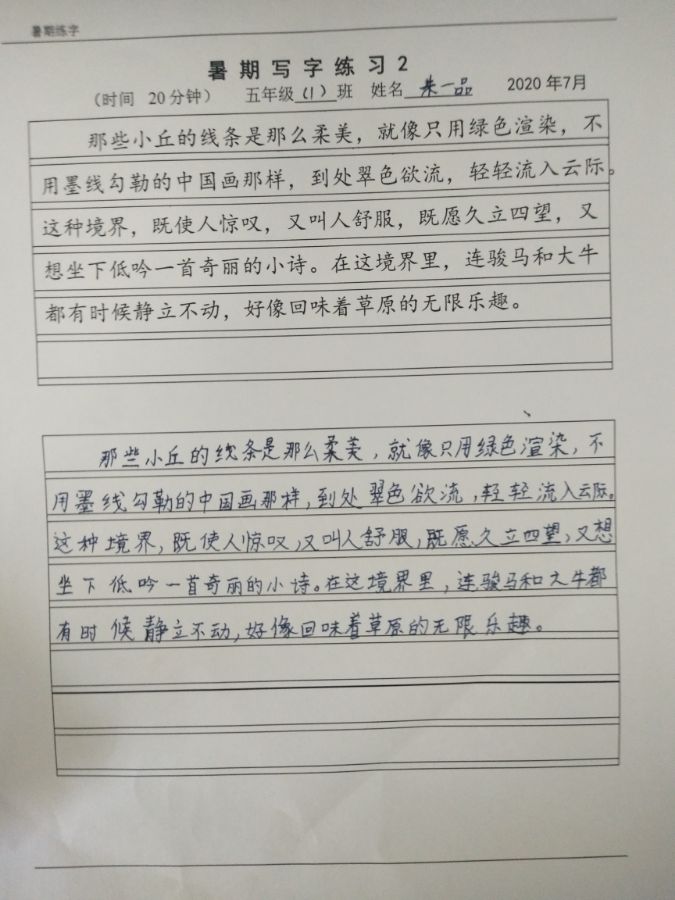 暑期练字
暑期写字练习2
（时间 20分钟） 五年级（1）班 姓名 朱一品 2020年7月
那些小丘的线条是那么柔美，就像只用绿色渲染，不
用墨线勾勒的中国画那样，到处翠色欲流，轻轻流入云际。
这种境界，既使人惊叹，又叫人舒服，既愿久立四望，又
想坐下低吟一首奇丽的小诗。在这境界里，连骏马和大牛
都有时候静立不动，好像回味着草原的无限乐趣。
那些小丘的线条是那么柔美，就像只用绿色渲染，不
用墨线勾勒的中国画那样，到处翠色欲流，轻轻流入云际。
这种境界，既使人惊叹，又叫人舒服，既愿久立四望，又想
坐下低吟一首奇丽的小诗。在这境界里，连骏马和大牛都
有时候静立不动，好像回味着草原的无限乐趣。